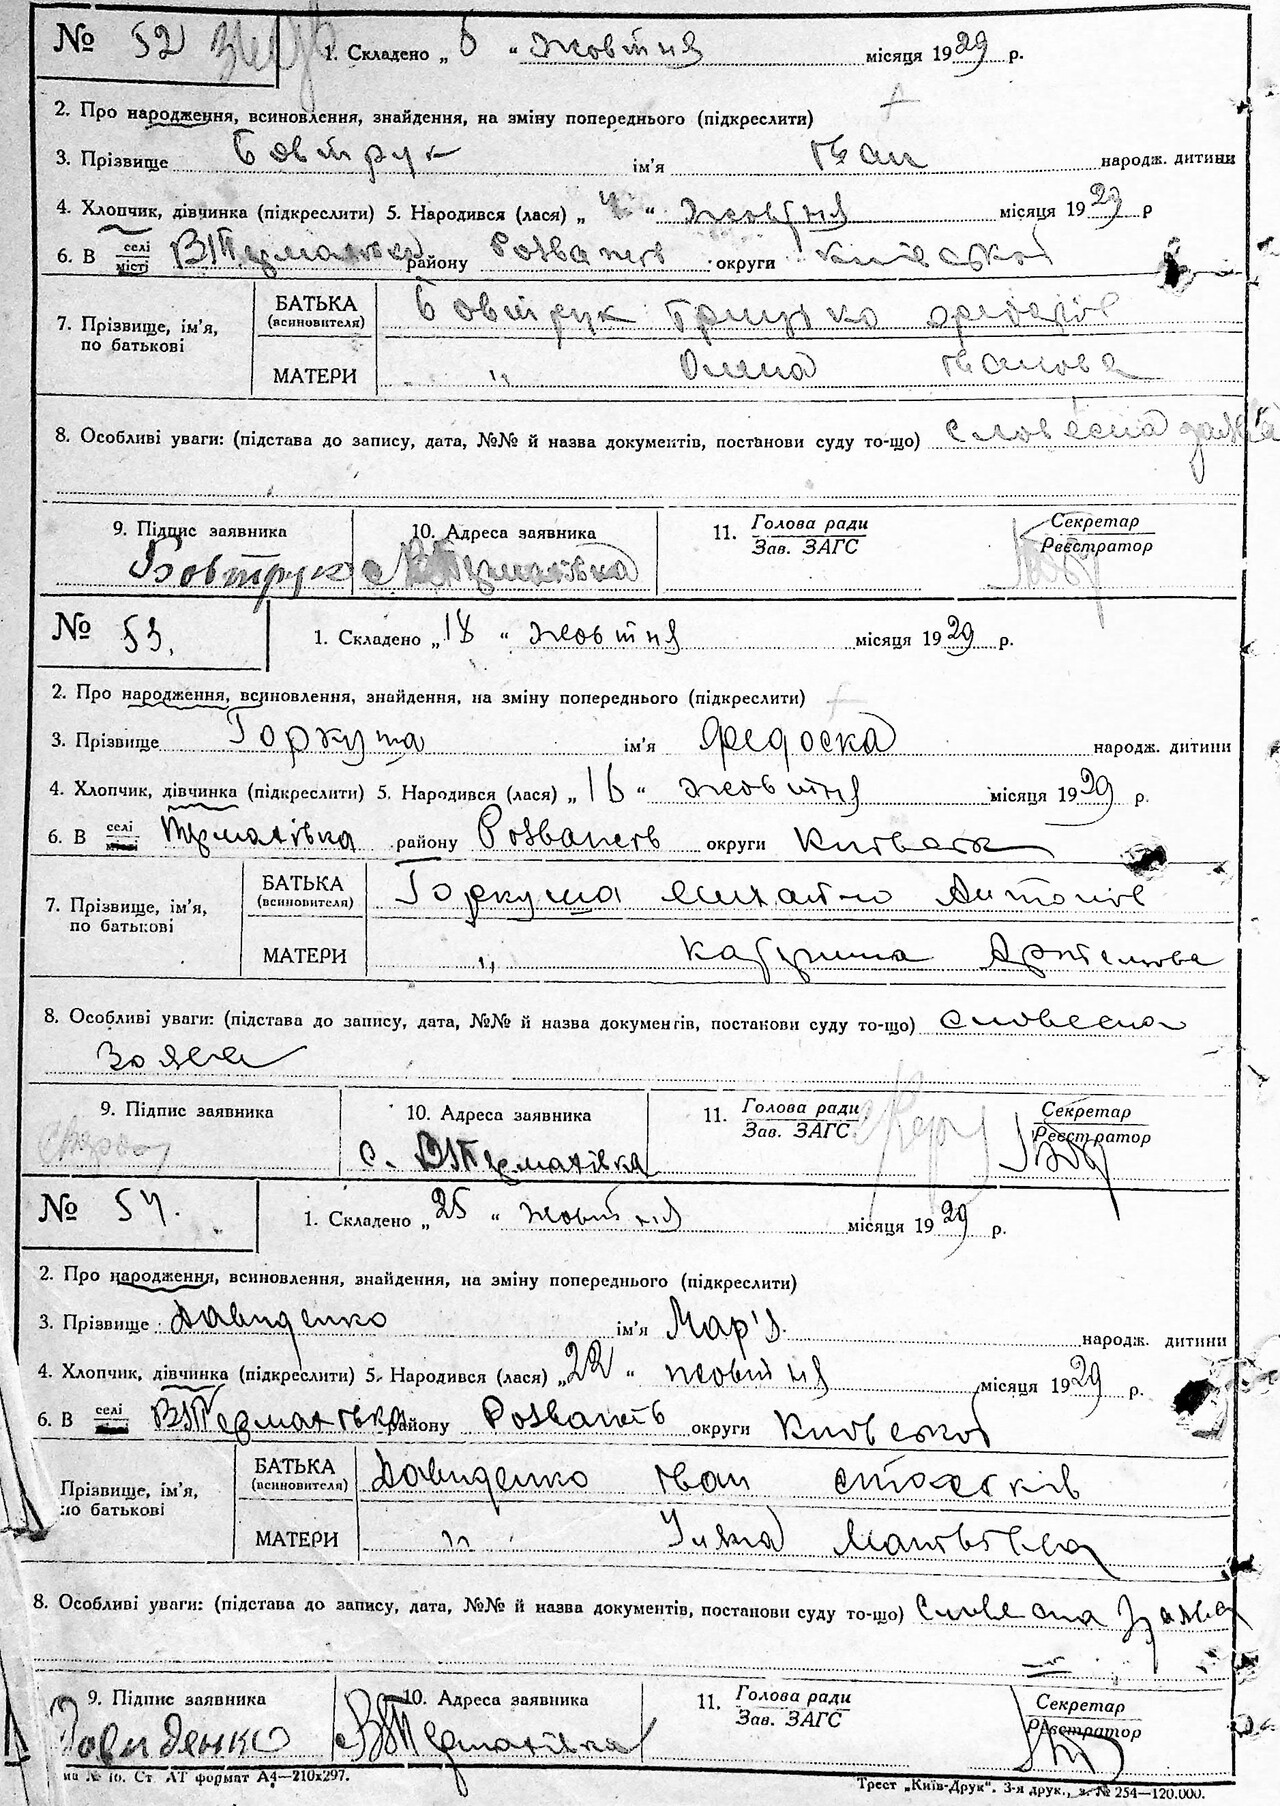 № 52 1. Складено „ 6 “ жовтня місяця 1929 р.
2. Про народження, всиновлення, знайдення, на зміну попереднього (підкреслити)
3. Прізвище Бовтрук ім'я Іван народж. дитини
4. Хлопчик, дівчинка (підкреслити) 5. Народився (лася) „ 4 “ жовтня місяця 1929 р
6. В селі місті В Термахівка району Розважів округи Київської
7. Прізвище, ім'я, по батькові
БАТЬКА (всиновителя) Бовтрук Грицько
МАТЕРИ „ Олена Іванова
8. Особливі уваги: (підстава до запису, дата, №№ й назва документів, постанови суду то-що) словесна заява
9. Підпис заявника 10. Адреса заявника 11. Голова ради Зав. ЗАГС Секретар Реєстратор
Бовтрук с В Термахівка
№ 53. 1. Складено „ 18 “ жовтня місяця 1929 р.
2. Про народження, всиновлення, знайдення, на зміну попереднього (підкреслити)
3. Прізвище Горкуша ім'я Федоска народж. дитини
4. Хлопчик, дівчинка (підкреслити) 5. Народився (лася) „ 16 “ жовтня місяця 1929 р.
6. В селі місті Термахівка району Розважів округи
7. Прізвище, ім'я, по батькові
БАТЬКА (всиновителя) Горкуша Михайло Антонів
МАТЕРИ „ Катерина Артемова
8. Особливі уваги: (підстава до запису, дата, №№ й назва документів, постанови суду то-що) словесна
заява
9. Підпис заявника 10. Адреса заявника 11. Голова ради Зав. ЗАГС Секретар Реєстратор
с. В Термахівка
№ 54. 1. Складено „ 25 “ жовтня місяця 1929 р.
2. Про народження, всиновлення, знайдення, на зміну попереднього (підкреслити)
3. Прізвище Давиденко ім'я Мар'я. народж. дитини
4. Хлопчик, дівчинка (підкреслити) 5. Народився (лася) „ 22 “ жовтня місяця 1929 р.
6. В селі В Термахівка району Розважів округи Київської
Прізвище, ім'я, по батькові
БАТЬКА (всиновителя) Давиденко Іван
МАТЕРИ „ Уляна Матвієва
8. Особливі уваги: (підстава до запису, дата, №№ й назва документів, постанови суду то-що) словесна заява
9. Підпис заявника 10. Адреса заявника 11. Голова ради Зав. ЗАГС Секретар Реєстратор
Давиденко с В Термахівка
Ст. АТ формат А4—210х297. Трест „Київ-Друк“. 3-я друк., з. № 254—120.000.